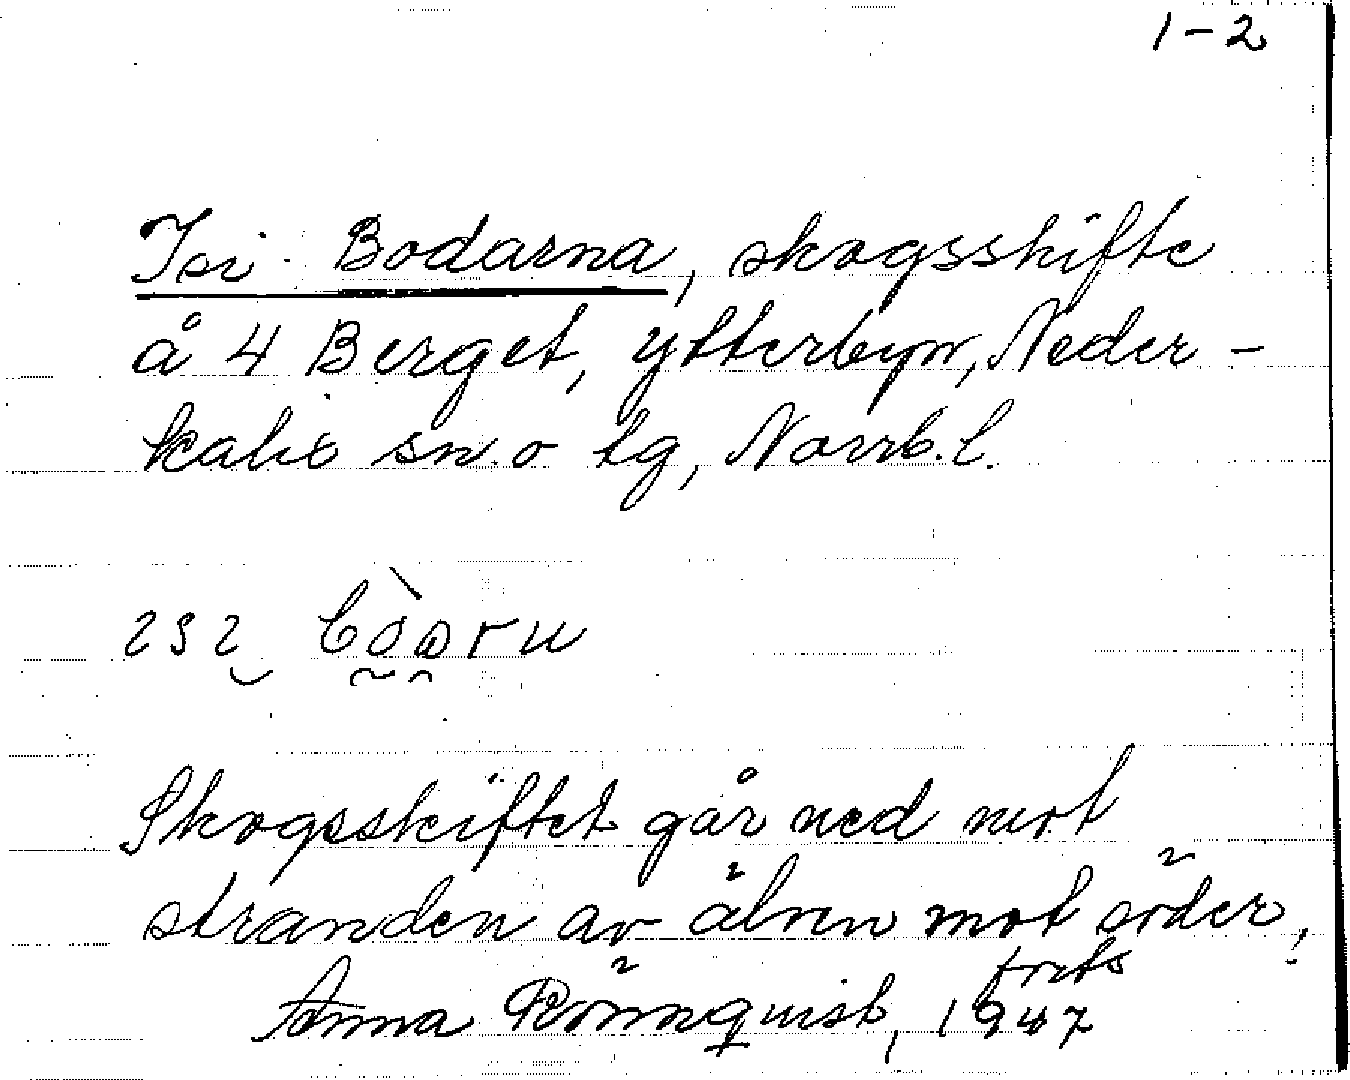 1-2
Isi Bodarna, skogsskifte
å 4 Berget, Ytterbyn, Neder-
kalix sn. o tg, Norrb. l.
Skogsskiftet går ned mot
stranden av älven mot söder,
forts
Anna Rönnquist, 1947